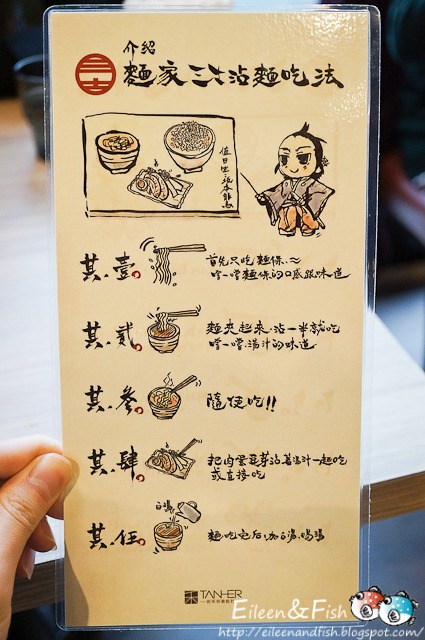 介紹
麵家三士沾麵吃法
值日生
其.壹。
首先只吃麵條.~
嚐一嚐麵條的口感跟味道
其.貳。
麵夾起來.沾一半就吃
嚐一嚐.湯汁的味道
其.參。
隨便吃!!
其.肆。
把肉.雲.豆芽沾著湯汁一起吃
或直接吃
其.伍。
白湯
麵吃完后.加白湯.喝湯
TANHER
Eileen&Fish
http://eileenandfish.blogspot.com/